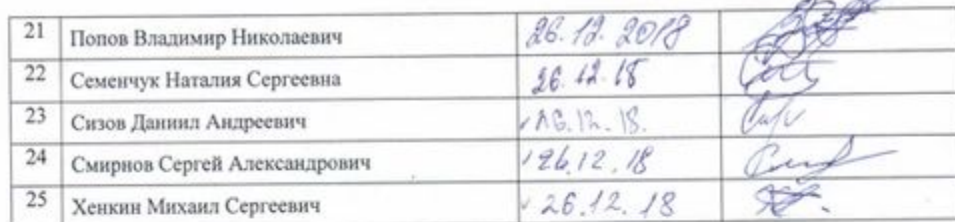 21 Попов Владимир Николаевич 26.12.2018
22 Семенчук Наталия Сергеевна 26.12.18
23 Сизов Даниил Андреевич 26.12.18.
24 Смирнов Сергей Александрович 26.12.18
25 Хенкин Михаил Сергеевич 26.12.18